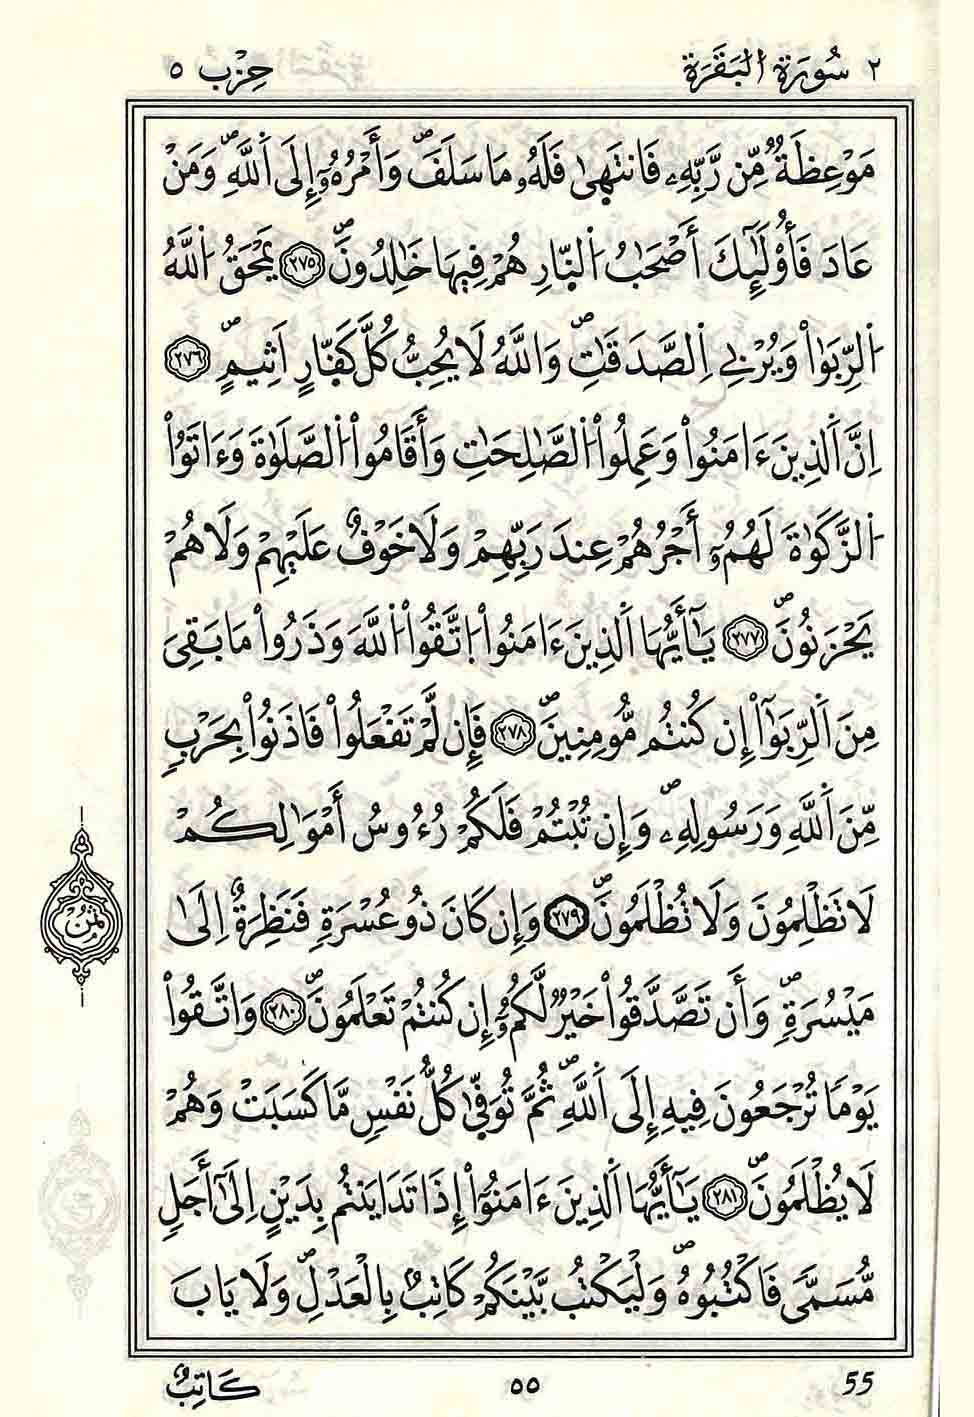 ٢ سُورَةُ الْبَقَرَةِ حِزْب ٥
مَوْعِظَةٌ مِّن رَّبِّهِۦ فَانتَهىٰ فَلَهُۥ مَا سَلَفَۖ وَأَمْرُهُۥٓ إِلَى اَللَّهِۖ وَمَنْ
عَادَ فَأُوْلَٰٓئِكَ أَصْحَٰبُ اُلنّ۪ارِ هُمْ فِيهَا خَٰلِدُونَۖ ٢٧٥ يَمْحَقُ اُللَّهُ
اُلرِّبَوٰاْ وَيُرْبِے اِلصَّدَقَٰتِۖ وَاللَّهُ لَا يُحِبُّ كُلَّ كَفّ۪ارٍ اَثِيمٍۖ ٢٧٦
اِنَّ اَلذِينَ ءَامَنُواْ وَعَمِلُواْ اُلصَّٰلِحَٰتِ وَأَقَامُواْ اُلصَّلَوٰةَ وَءَاتَوُاْ
اُلزَّكَوٰةَ لَهُمُۥٓ أَجْرُهُمْ عِندَ رَبِّهِمْ وَلَا خَوْفٌ عَلَيْهِمْ وَلَا هُمْ
يَحْزَنُونَۖ ٢٧٧ يَٰٓأَيُّهَا اَلذِينَ ءَامَنُواْ اُتَّقُواْ اُللَّهَ وَذَرُواْ مَا بَقِيَ
مِنَ اَلرِّبَوٰٓاْ إِن كُنتُم مُّومِنِينَۖ ٢٧٨ فَإِن لَّمْ تَفْعَلُواْ فَاذَنُواْ بِحَرْبٍ
مِّنَ اَللَّهِ وَرَسُولِهِۦۖ وَإِن تُبْتُمْ فَلَكُمْ رُءُوسُ أَمْوَٰلِكُمْ
لَا تَظْلِمُونَ وَلَا تُظْلَمُونَۖ ٢٧٩ وَإِن كَانَ ذُو عُسْرَةٍ فَنَظِرَةٌ اِلَىٰ
ثُمُنْ
مَيْسُرَةٍۖ وَأَن تَصَّدَّقُواْ خَيْرٌ لَّكُمُۥٓ إِن كُنتُمْ تَعْلَمُونَۖ ٢٨٠ وَاتَّقُواْ
يَوْماً تُرْجَعُونَ فِيهِ إِلَى اَللَّهِۖ ثُمَّ تُوَفّ۪ىٰ كُلُّ نَفْسٍ مَّا كَسَبَتْ وَهُمْ
لَا يُظْلَمُونَۖ ٢٨١ يَٰٓأَيُّهَا اَلذِينَ ءَامَنُوٓاْ إِذَا تَدَايَنتُم بِدَيْنٍ اِلَىٰٓ أَجَلٍ
مُّسَمّىً فَاكْتُبُوهُۖ وَلْيَكْتُب بَّيْنَكُمْ كَاتِبٌ بِالْعَدْلِۖ وَلَا يَابَ
55 ٥٥ كَاتِبٌ